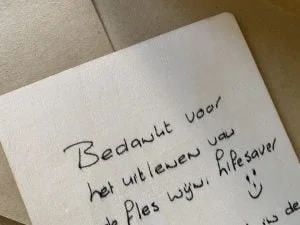 Bedankt voor
het uitlenen van
de fles wijn. Lifesaver
:)
in de